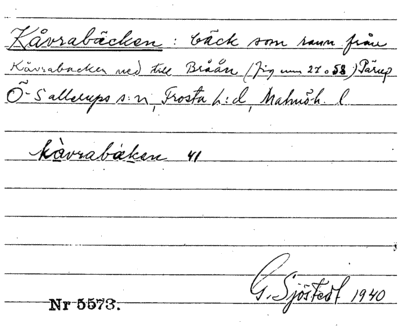 Kåvrabäcken : bäck som rann från
Kåvrabacken ned till Bråån (fig nrn 27 o 58) Pärup
Ö. Sallerups s:n, Frosta h:d, Malmöh. l
kåvrabäken 41
G. Sjöstedt 1940
Nr 5573.